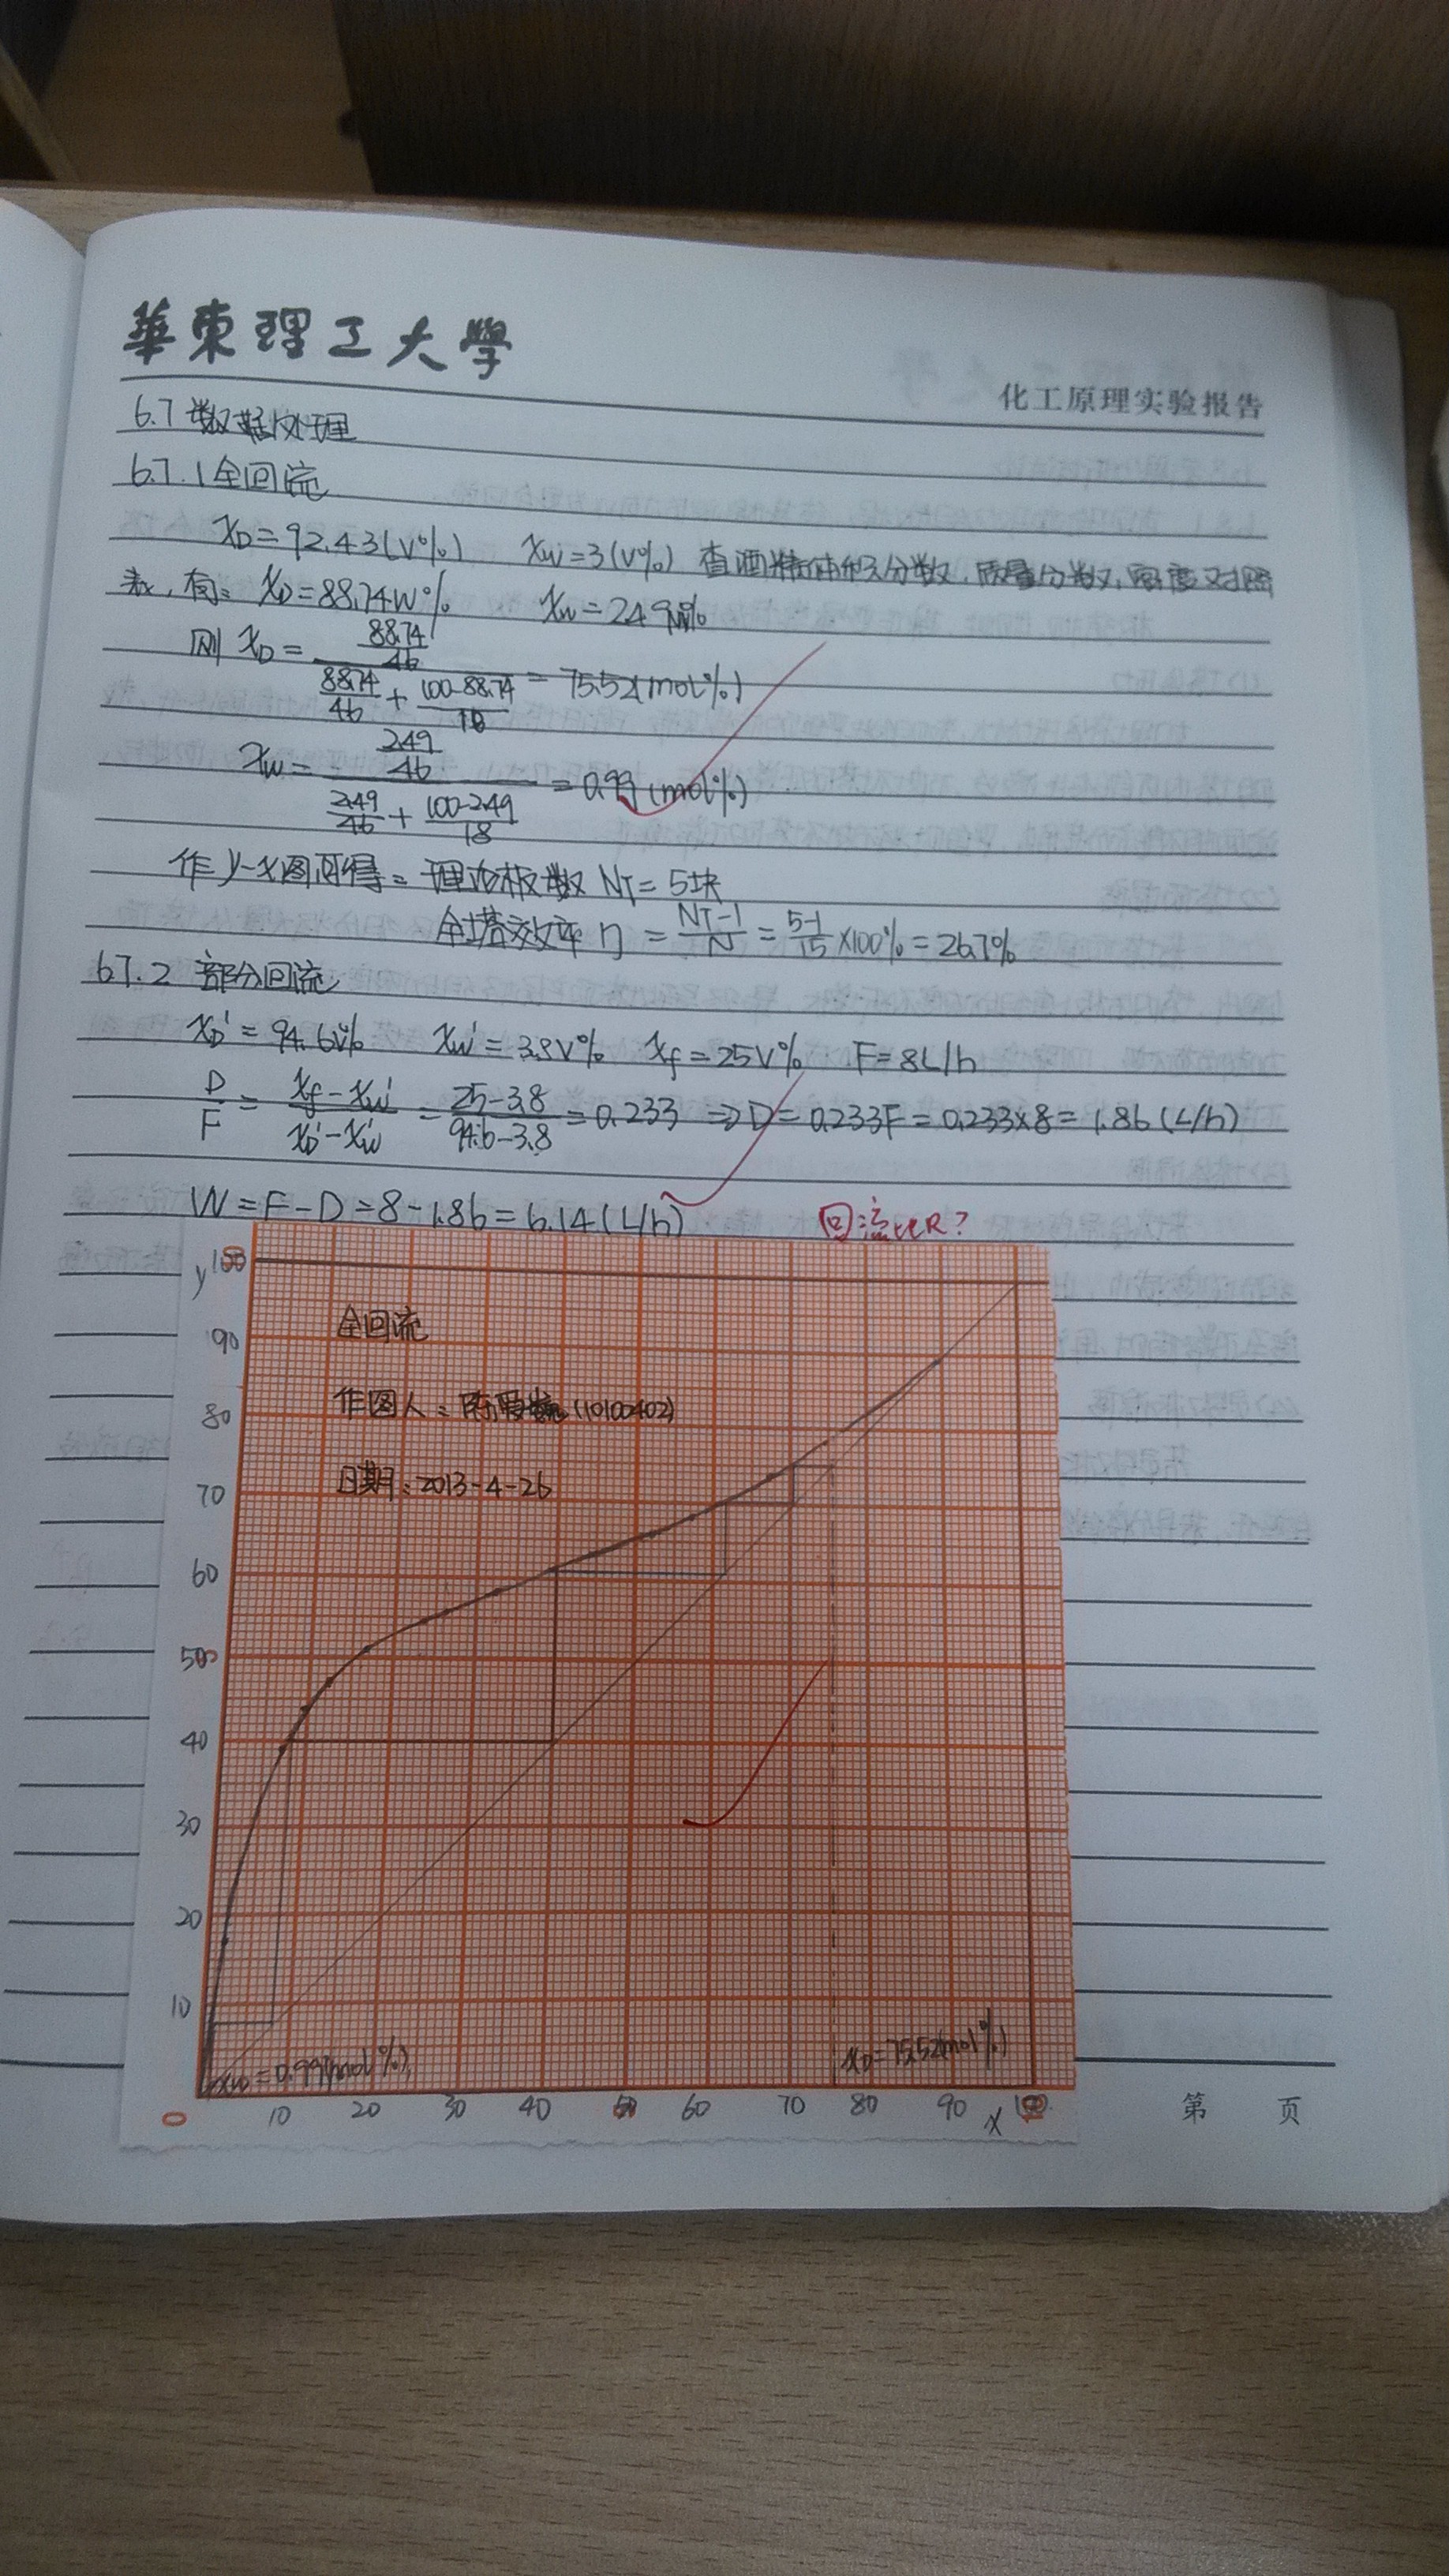 華東理工大學
化工原理实验报告
6.7 数据处理
6.7.1 全回流
xD=92.43(V%) xw=3(V%) 查酒精体积分数、质量分数、密度对照
表，有：xD=88.74W% xw=2.49W%
则 xD = (88.74/46) / (88.74/46 + (100-88.74)/18) = 75.52(mol%)
xw = (2.49/46) / (2.49/46 + (100-2.49)/18) = 0.99(mol%)
作y-x图可得：理论板数 NT=5块
全塔效率 η = (NT-1)/N = (5-1)/15 ×100% = 26.7%
6.7.2 部分回流
xD'=94.6V% xw'=3.8V% xf=25V% F=8L/h
D/F = (xf-xw')/(xD'-xw') = (25-3.8)/(94.6-3.8) = 0.233 ⇒ D=0.233F=0.233×8=1.86(L/h)
W=F-D=8-1.86=6.14(L/h)
回流比R?
y 100
全回流
90
作图人： (10100402)
80
日期：2013-4-26
70
60
50
40
30
20
10
xw=0.99(mol%) xD=75.52(mol%)
0 10 20 30 40 50 60 70 80 90 x 100
第 页